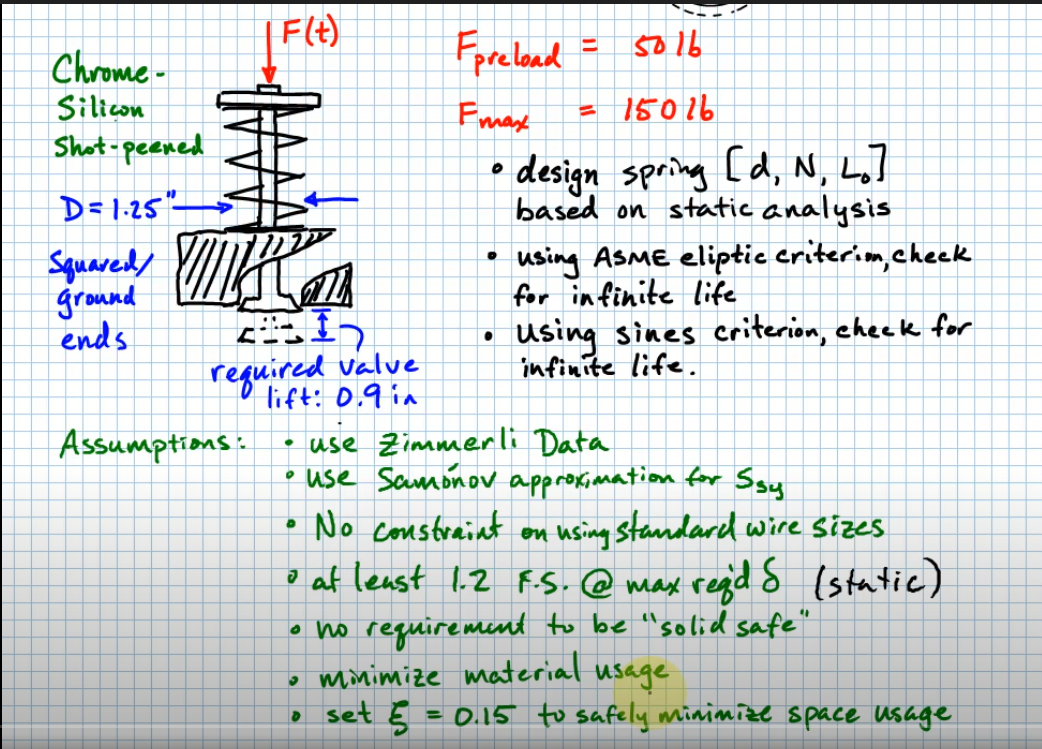 F(t)
Chrome-
Silicon
Shot-peened
D = 1.25"
Squared/
ground
ends
required valve
lift: 0.9 in
Fpreload = 50 lb
Fmax = 150 lb
• design spring [d, N, L₀]
based on static analysis
• using ASME eliptic criterion, check
for infinite life
• Using sines criterion, check for
infinite life.
Assumptions: • use Zimmerli Data
• use Samónov approximation for Ssy
• No constraint on using standard wire sizes
• at least 1.2 F.S. @ max req'd δ (static)
• no requirement to be "solid safe"
• minimize material usage
• set ξ = 0.15 to safely minimize space usage